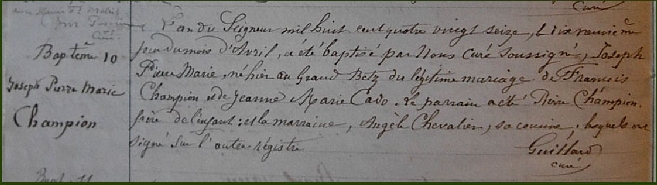 curé
Baptême 10
Joseph Pierre Marie
Champion
L'an du Seigneur mil huit cent quatre vingt seize, le dixneuvième
jour du mois d'Avril, a été baptisé par Nous curé soussigné, Joseph
Pierre Marie, né hier au Grand Betz du légitime mariage de François
Champion et de Jeanne Marie Cado. Le parrain a été Pierre Champion
frère de l'enfant et la marraine, Angèle Chevalier, sa cousine, lesquels ont
signé sur l'autre registre
Guillard
curé